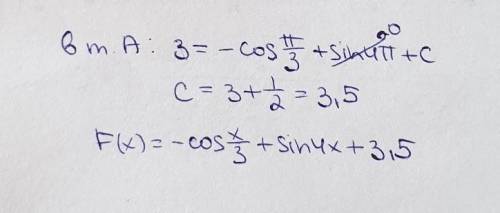 в т. A: 3 = -cos π/3 + sin4π⁰ + C
C = 3 + 1/2 = 3,5
F(x) = -cos x/3 + sin4x + 3,5